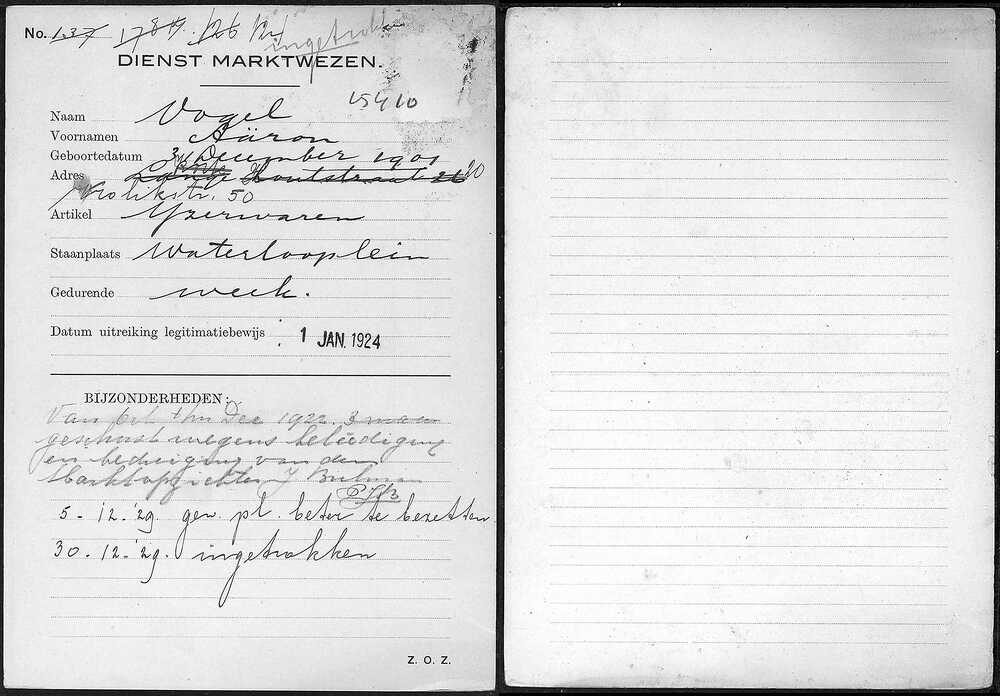 No. 137 1784 126 ingetrokken
DIENST MARKTWEZEN.
15410
Naam Vogel
Voornamen Aäron
Geboortedatum 3 December 1901
Adres Lange Houtstraat 20
Krolikstr. 50
Artikel Yzerwaren
Staanplaats Waterlooplein
Gedurende week.
Datum uitreiking legitimatiebewijs 1 JAN. 1924
BIJZONDERHEDEN:
Van Oct t/m Dec 1922. 3 maan
geschorst wegens beleediging
en bedreiging van den
Marktopzichter J
5-12-'29. gew. pl. beter te bezetten
30-12-'29. ingetrokken
Z. O. Z.